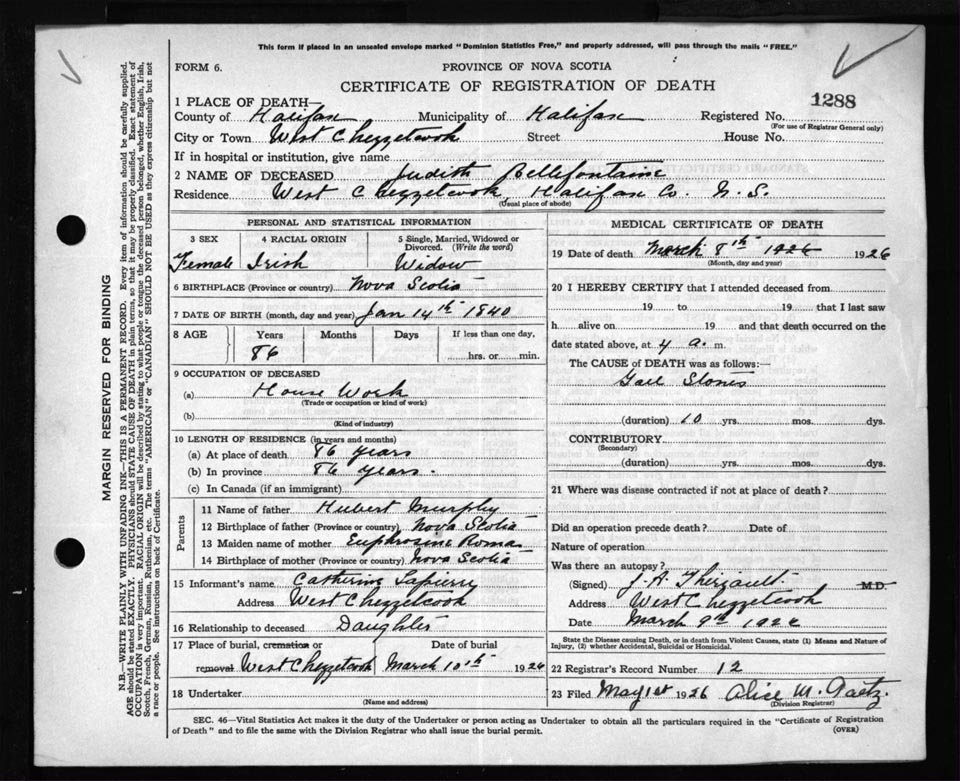 This form if placed in an unsealed envelope marked "Dominion Statistics Free," and properly addressed, will pass through the mails "FREE."
FORM 6.
PROVINCE OF NOVA SCOTIA
CERTIFICATE OF REGISTRATION OF DEATH
1288
1 PLACE OF DEATH—
County of Halifax Municipality of Halifax Registered No.
(For use of Registrar General only)
City or Town West Chezzetcook Street House No.
If in hospital or institution, give name
2 NAME OF DECEASED Judith Bellefontaine
Residence West Chezzetcook, Halifax Co. N. S.
(Usual place of abode)
PERSONAL AND STATISTICAL INFORMATION
3 SEX 4 RACIAL ORIGIN 5 Single, Married, Widowed or Divorced. (Write the word)
Female Irish Widow
6 BIRTHPLACE (Province or country) Nova Scotia
7 DATE OF BIRTH (month, day and year) Jan 14th 1840
8 AGE Years Months Days If less than one day,
86 hrs. or min.
9 OCCUPATION OF DECEASED
(a) House Work
(Trade or occupation or kind of work)
(b)
(Kind of industry)
10 LENGTH OF RESIDENCE (in years and months)
(a) At place of death 86 years
(b) In province 86 years.
(c) In Canada (if an immigrant)
Parents
11 Name of father Hubert Murphy
12 Birthplace of father (Province or country) Nova Scotia
13 Maiden name of mother Euphrosine Roma
14 Birthplace of mother (Province or country) Nova Scotia
15 Informant's name Catherine Lapierre
Address West Chezzetcook
16 Relationship to deceased Daughter
17 Place of burial, cremation or removal Date of burial
West Chezzetcook March 10th 1926
18 Undertaker
(Name and address)
MEDICAL CERTIFICATE OF DEATH
19 Date of death March 8th 1926 1926
(Month, day and year)
20 I HEREBY CERTIFY that I attended deceased from
19 to 19 that I last saw
h alive on 19 and that death occurred on the
date stated above, at 4 a. m.
The CAUSE of DEATH was as follows:
Gall Stones
(duration) 10 yrs. mos. dys.
CONTRIBUTORY
(Secondary)
(duration) yrs. mos. dys.
21 Where was disease contracted if not at place of death?
Did an operation precede death? Date of
Nature of operation
Was there an autopsy?
(Signed) J. A. Theriault M.D.
Address West Chezzetcook
Date March 9th 1926
State the Disease causing Death, or in death from Violent Causes, state (1) Means and Nature of
Injury, (2) whether Accidental, Suicidal or Homicidal.
22 Registrar's Record Number 12
23 Filed May 1st 1926 Alice M. Gaetz.
(Division Registrar)
SEC. 46—Vital Statistics Act makes it the duty of the Undertaker or person acting as Undertaker to obtain all the particulars required in the "Certificate of Registration
of Death" and to file the same with the Division Registrar who shall issue the burial permit. (OVER)
MARGIN RESERVED FOR BINDING
N.B.—WRITE PLAINLY WITH UNFADING INK—THIS IS A PERMANENT RECORD. Every item of information should be carefully supplied.
AGE should be stated EXACTLY. PHYSICIANS should STATE CAUSE OF DEATH in plain terms, so that it may be properly classified. Exact statement of
OCCUPATION is very important. RACIAL ORIGIN will be described by stating to what people or tongue the deceased person belonged, whether English, Irish,
Scotch, French, German, Russian, Ruthenian, etc. The terms "AMERICAN" or "CANADIAN" SHOULD NOT BE USED as they express citizenship but not
a race or people. See instructions on back of Certificate.